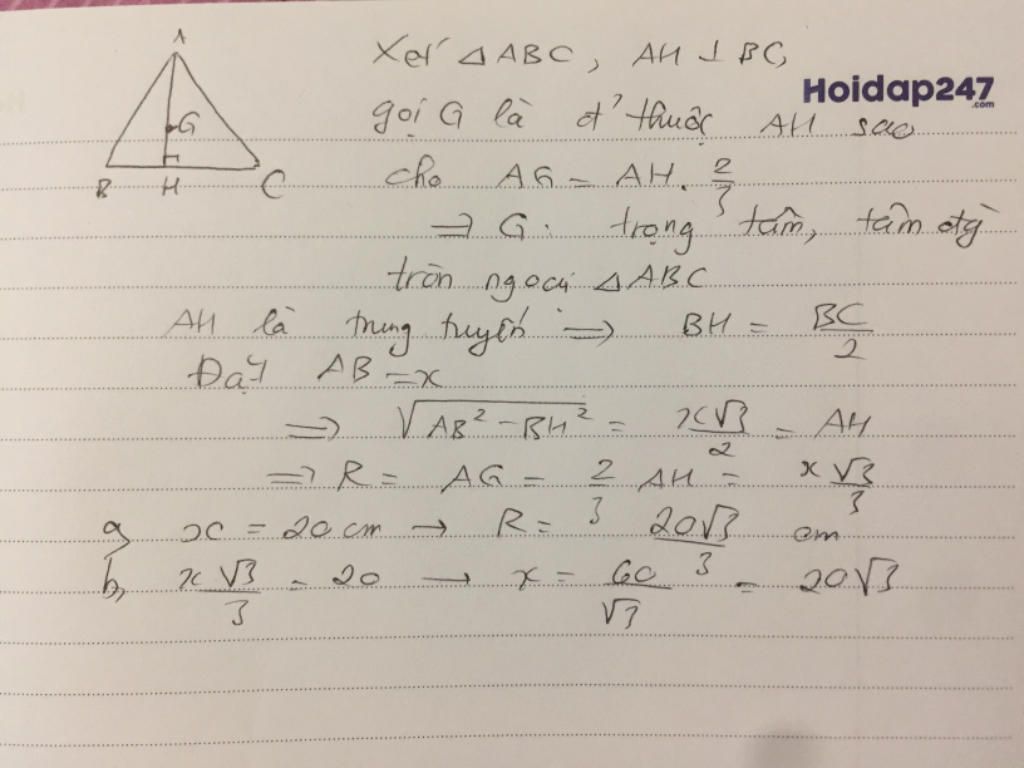 A
G
B H C
Xét △ABC, AH ⊥ BC,
Hoidap247
.com
gọi G là đ' thuộc AH sao
cho AG = AH. 2/3
⇒ G: trọng tâm, tâm đg`
tròn ngoại △ABC
AH là trung tuyến ⇒ BH = BC/2
Đặt AB = x
⇒ √(AB² - BH²) = x√3/2 = AH
⇒ R = AG = 2/3 AH = x√3/3
a, x = 20 cm → R = 20√3/3 cm
b, x√3/3 = 20 → x = 60/√3 = 20√3